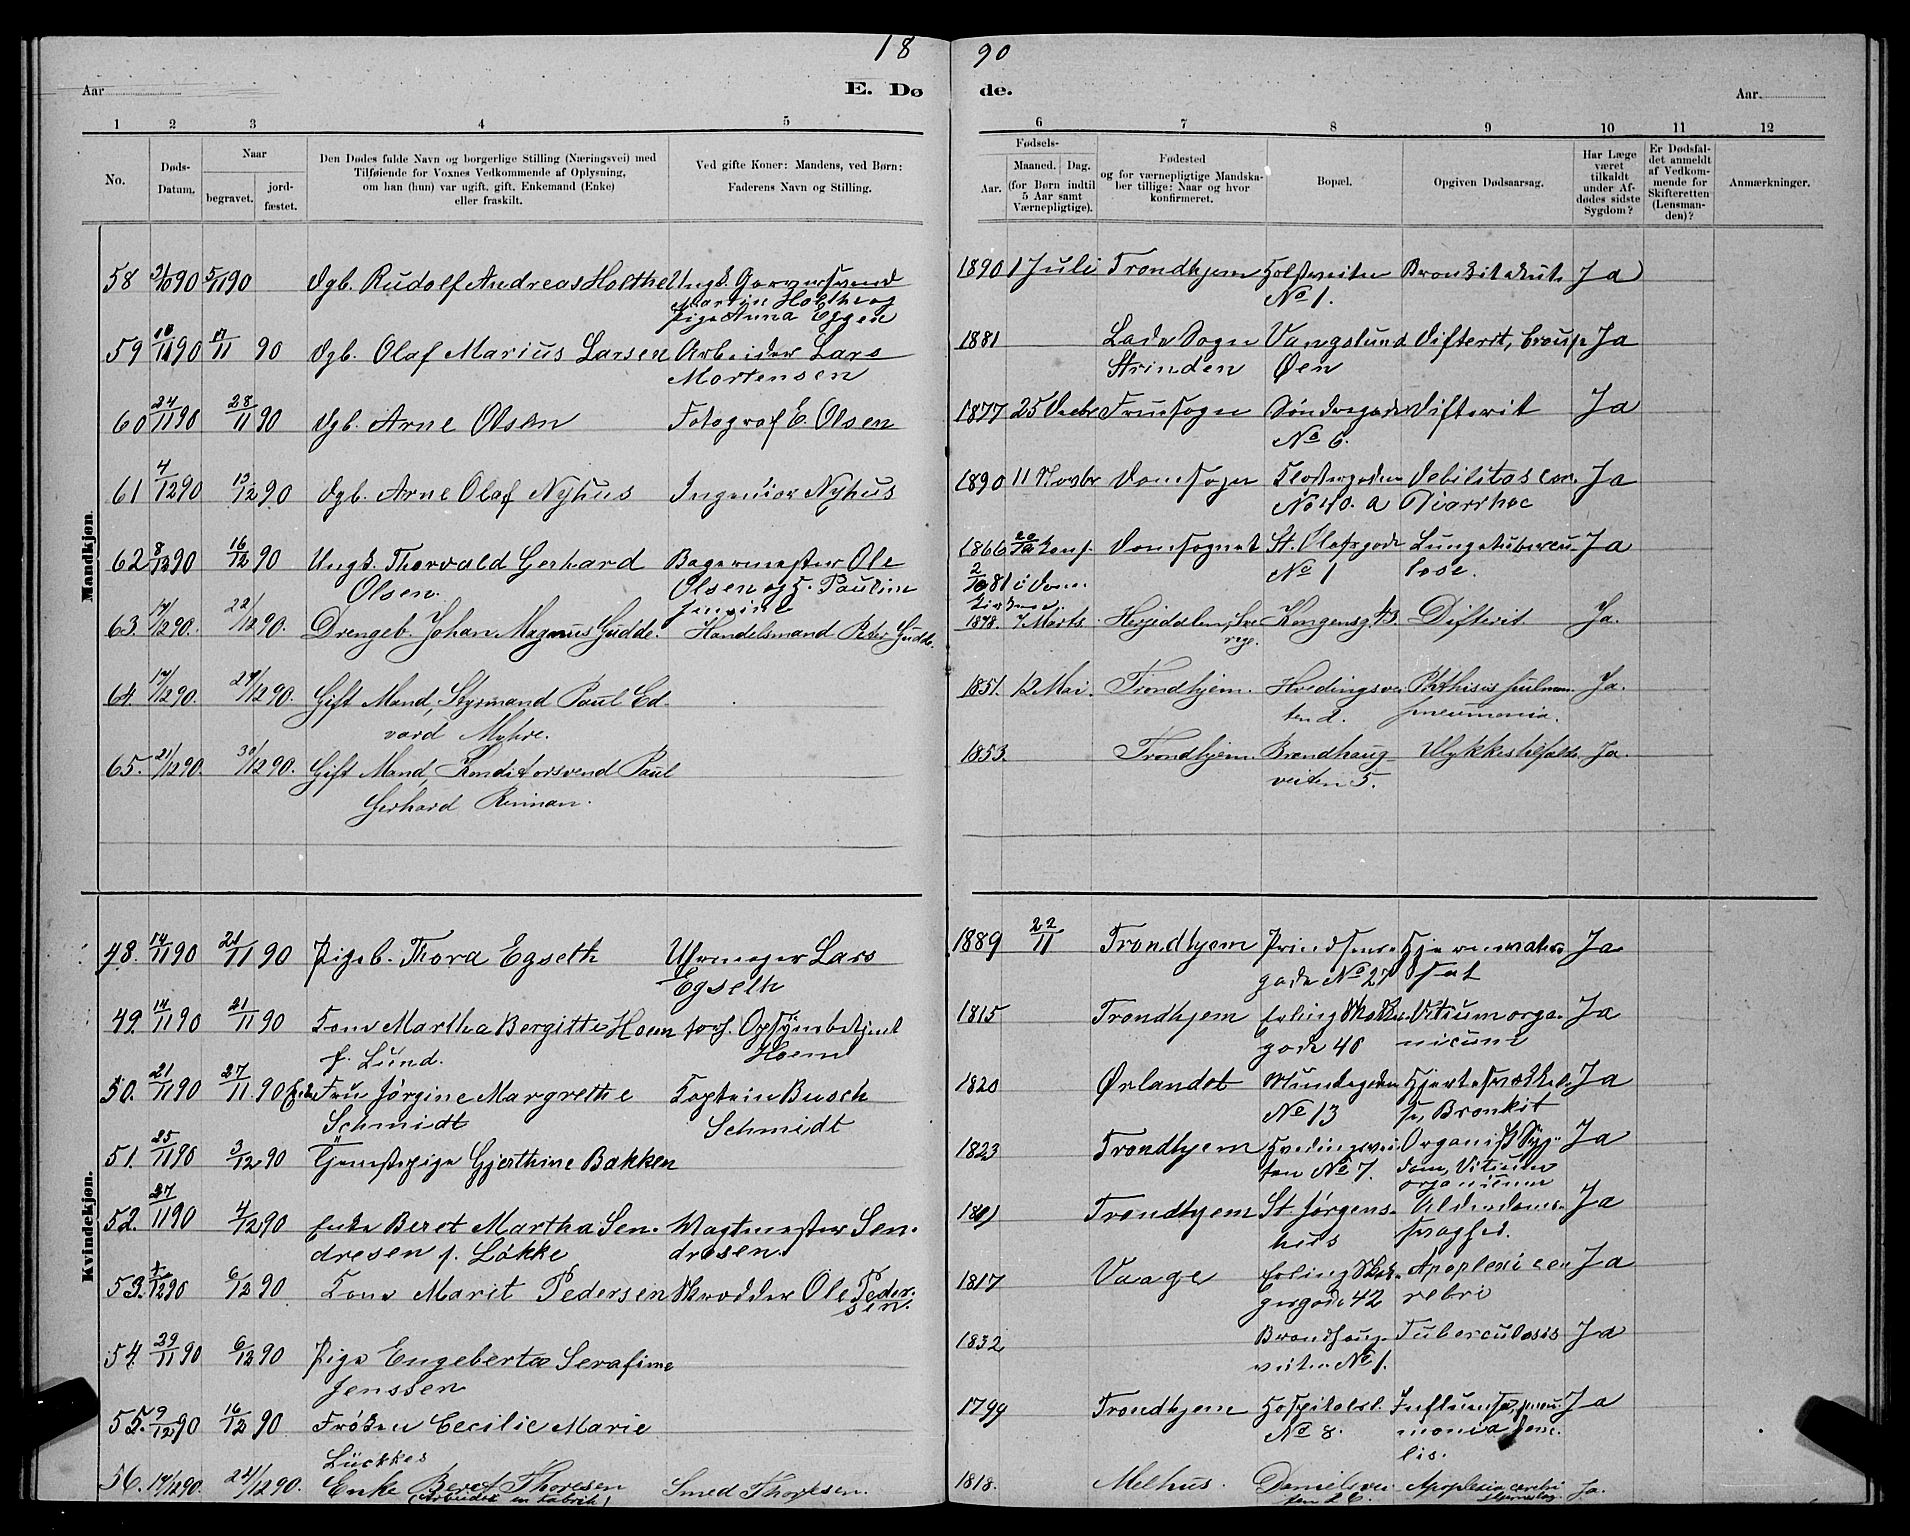 18 90
Aar
E. Dø de.
Aar.
1 2 3 4 5 6 7 8 9 10 11 12
No.
Døds-Datum.
Naar
begravet.
jord-fæstet.
Den Dødes fulde Navn og borgerlige Stilling (Næringsvei) med
Tilføiende for Voxnes Vedkommende af Oplysning,
om han (hun) var ugift, gift, Enkemand (Enke)
eller fraskilt.
Ved gifte Koner: Mandens, ved Børn:
Faderens Navn og Stilling.
Fødsels-
Aar.
Maaned.
Dag.
(for Børn indtil
5 Aar samt
Værnepligtige).
Fødested
og for værnepligtige Mandska-
ber tillige: Naar og hvor
konfirmeret.
Bopæl.
Opgiven Dødsaarsag.
Har Læge
været
tilkaldt
under Af-
dødes sidste
Sygdom?
Er Dødsfal-
det anmeldt
af Vedkom-
mende for
Skifteretten
(Lensman-
den)?
Anmærkninger.
Mandkjøn.
58 31/10 90 5/11 90 Dgb. Rudolf Andreas Holthe Ungk. Garversvend 1890 1 Juli Trondhjem No 1. Ja
Martin Holthe og
Pige Anna Eggen
59 10/11 90 17/11 90 Dgb. Olaf Marius Larsen Arbeider Lars 1881 Lade Sogn Vangslund Difterit, Croup Ja
Mortensen Strinden Øen
60 24/11 90 28/11 90 Dgb. Arne Olsen Fotograf E. Olsen 1877 25 Decbr Fruesogn Søndregade Difterit Ja
No 6.
61 4/12 90 13/12 90 Dgb. Arne Olaf Nyhus Ingeniør Nyhus 1890 11 Novbr Domsogn Klostergaden Debilitas con. Ja
No 40. a Diarrhoe
62 8/12 90 16/12 90 Ungk. Thorvald Gerhard Bagermester Ole 1866 Konf. Domsognet St. Olafsgade Lungetubercu- Ja
Olsen. Olsen og H. Pauline 2/10 81 i Dom- No 1 lose.
Jensine kirken.
63. 17/12 90. 22/12 90. Drengeb. Johan Magnus Gudde. Handelsmand Peter Gudde. 1878. 7 Marts. Herjedalen, Sve- Kongensg. Difterit. Ja.
rige.
64. 17/12 90. 27/12 90. Gift Mand, Styrmand Paul Ed- 1851. 12 Mai. Trondhjem. Hvedingsvei- Phthisis pulmon. Ja.
vard Myhre. ten 2. pneumonia.
65. 21/12 90. 30/12 90. Gift Mand, Konditorsvend Paul 1853. Trondhjem. Brandhaug- Ulykkestilfælde. Ja.
Gerhard Rinnan. veiten 5.
Kvindekjøn.
48. 14/11 90 21/11 90 Pigeb. Thora Egseth Uhrmager Lars 1889 22/11 Trondhjem Prindsens- Ja
Egseth gade No 27
49. 14/11 90 21/11 90 Kone Martha Bergitte Hoem forh. Opsynsbetjent 1815 Trondhjem Erling Skakkes Vitium orga- Ja
f. Lund. Hoem gade 40 nicum
50. 21/11 90 27/11 90 Enke Fru Jørgine Margrethe Kaptein Busch 1820 Ørlandet Munkegaden Ja
Schmidt Schmidt No 13 Bronkit
51. 25/11 90 3/12 90 Tjenestepige Gjerthine Bakken 1823 Trondhjem Hvedingsvei- Organisk Syg- Ja
ten No 7. dom, Vitium
organicum
52. 27/11 90 4/12 90 Enke Beret Martha Sen- Vagtmester Sen- Trondhjem St. Jørgens- Alderdoms- Ja
dresen f. Løkke dresen hus svaghed.
53. 90 6/12 90 Kone Marit Pedersen Skrædder Ole Peder- 1817 Vaage Erling Skak- Apoplexi ce- Ja
sen. gade 42 rebri
54. 29/11 90 6/12 90 Pige Engeberta Serafine 1832 Brandhaug- Tuberculosis Ja
Jenssen veiten No 1.
55. 9/12 90 16/12 90 Frøken Cecilie Marie 1799 Trondhjem Hospitalsl. Influensa, pneu- Ja
Lückkes No 8. monia seni-
lis.
56. 17/12 90. 24/12 90. Enke Beret Thoresen Smed Thoresen. 1818. Melhus. Danielsvei- Apoplexia cerebri Ja.
(Arbeider en Fabrik)